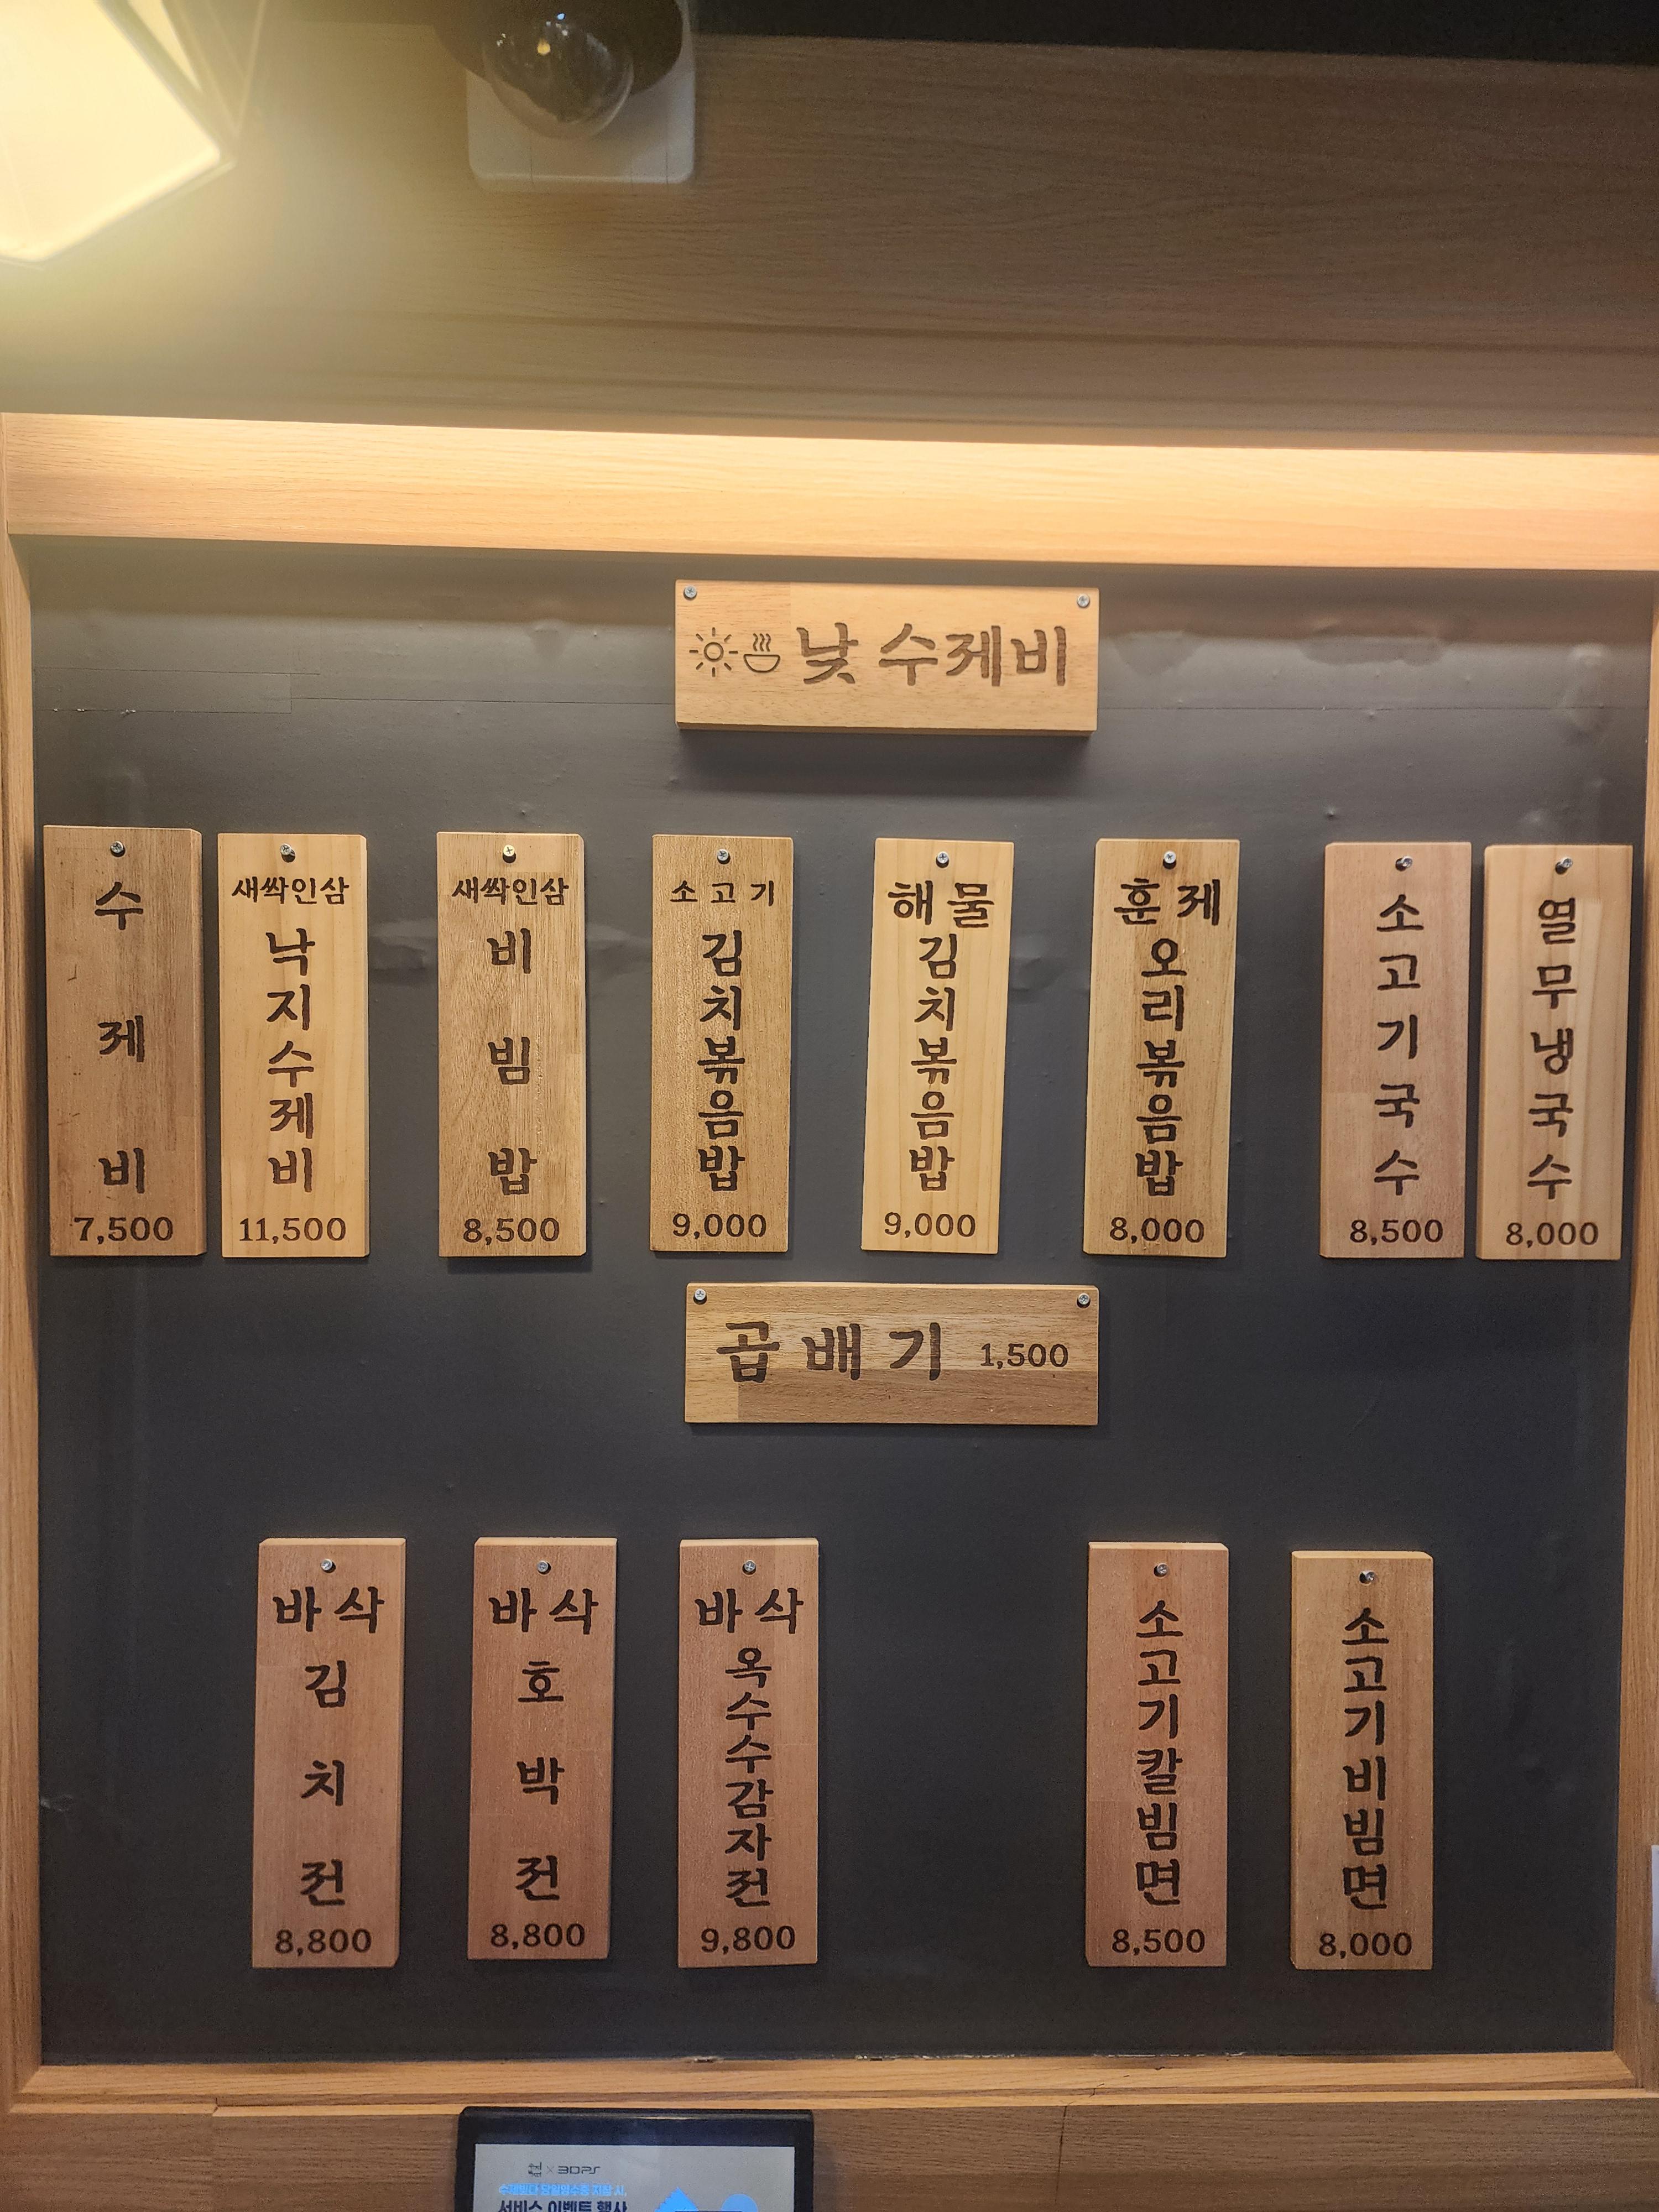 낮 수제비
수제비
7,500
새싹인삼
낙지수제비
11,500
새싹인삼
비빔밥
8,500
소고기
김치볶음밥
9,000
해물
김치볶음밥
9,000
훈제
오리볶음밥
8,000
소고기국수
8,500
열무냉국수
8,000
곱배기 1,500
바삭
김치전
8,800
바삭
호박전
8,800
바삭
옥수수감자전
9,800
소고기칼빔면
8,500
소고기비빔면
8,000
x 3DPS
서비스 이벤트 행사